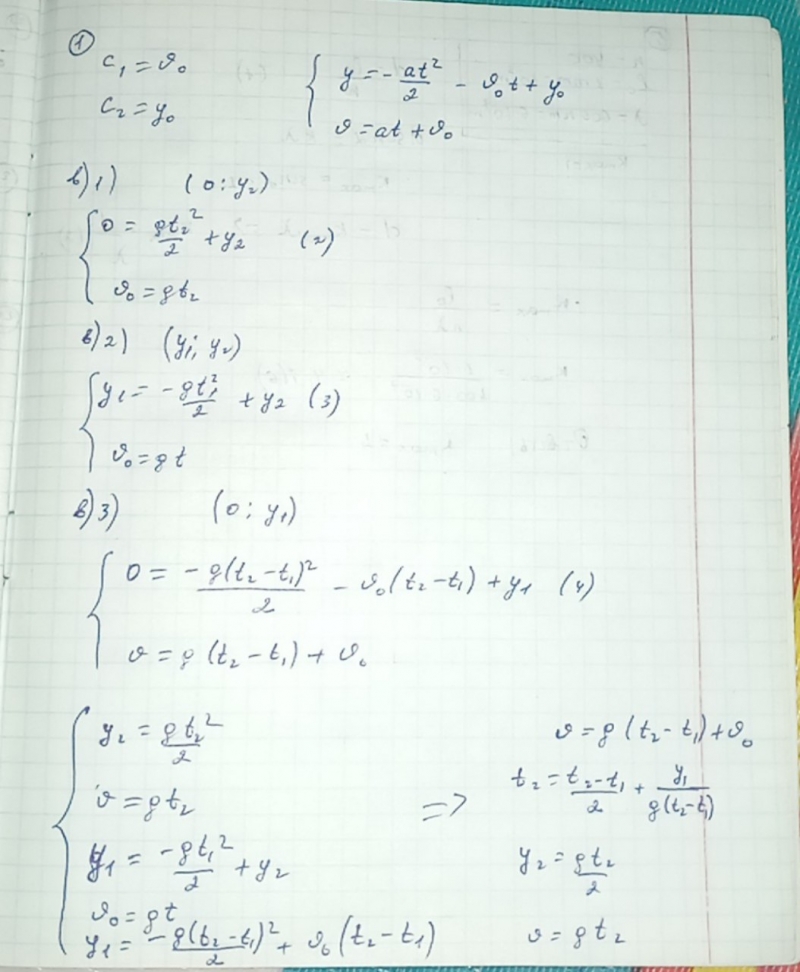 ①
C₁ = ϑ₀
C₂ = y₀
{ y = - at²/2 - ϑ₀t + y₀
ϑ = at + ϑ₀
в) 1) (0 ; y₂)
{ 0 = gt₂²/2 + y₂ (2)
ϑ₀ = gt₂
в) 2) (y₁; y₂)
{ y₁ = - gt₁²/2 + y₂ (3)
ϑ₀ = gt
в) 3) (0 ; y₁)
{ 0 = - g(t₂ - t₁)²/2 - ϑ₀(t₂ - t₁) + y₁ (4)
ϑ = g (t₂ - t₁) + ϑ₀
{ y₂ = gt₂²/2
ϑ = gt₂
y₁ = -gt₁²/2 + y₂
ϑ₀ = gt
y₁ = -g(t₂ - t₁)²/2 + ϑ₀(t₂ - t₁)
=>
ϑ = g (t₂ - t₁) + ϑ₀
t₂ = t₂ - t₁/2 + y₁/g(t₂ - t₁)
y₂ = gt₂/2
ϑ = gt₂